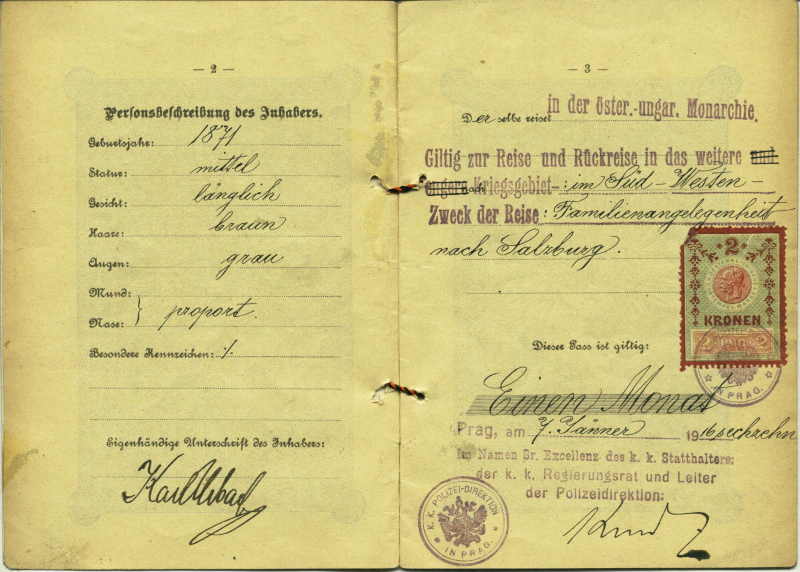 — 2 —
Personsbeschreibung des Inhabers.
Geburtsjahr: 1871
Statur: mittel
Gesicht: länglich
Haare: braun
Augen: grau
Mund:
Nase: } proport.
Besondere Kennzeichen: ·/.
Eigenhändige Unterschrift des Inhabers:
Karl
— 3 —
Derselbe reiset in der öster.-ungar. Monarchie.
Giltig zur Reise und Rückreise in das weitere und
engere nach Kriegsgebiet -: im Süd-Westen-
Zweck der Reise: Familienangelegenheit
nach Salzburg.
2
KRONEN
2 2
IN PRAG.
Dieser Pass ist giltig:
Einen Monat
Prag, am 7. Jänner 1916 sechzehn
Im Namen Sr. Excellenz des k. k. Statthalters:
der k. k. Regierungsrat und Leiter
der Polizeidirektion:
K. K. POLIZEI-DIREKTION
IN PRAG.